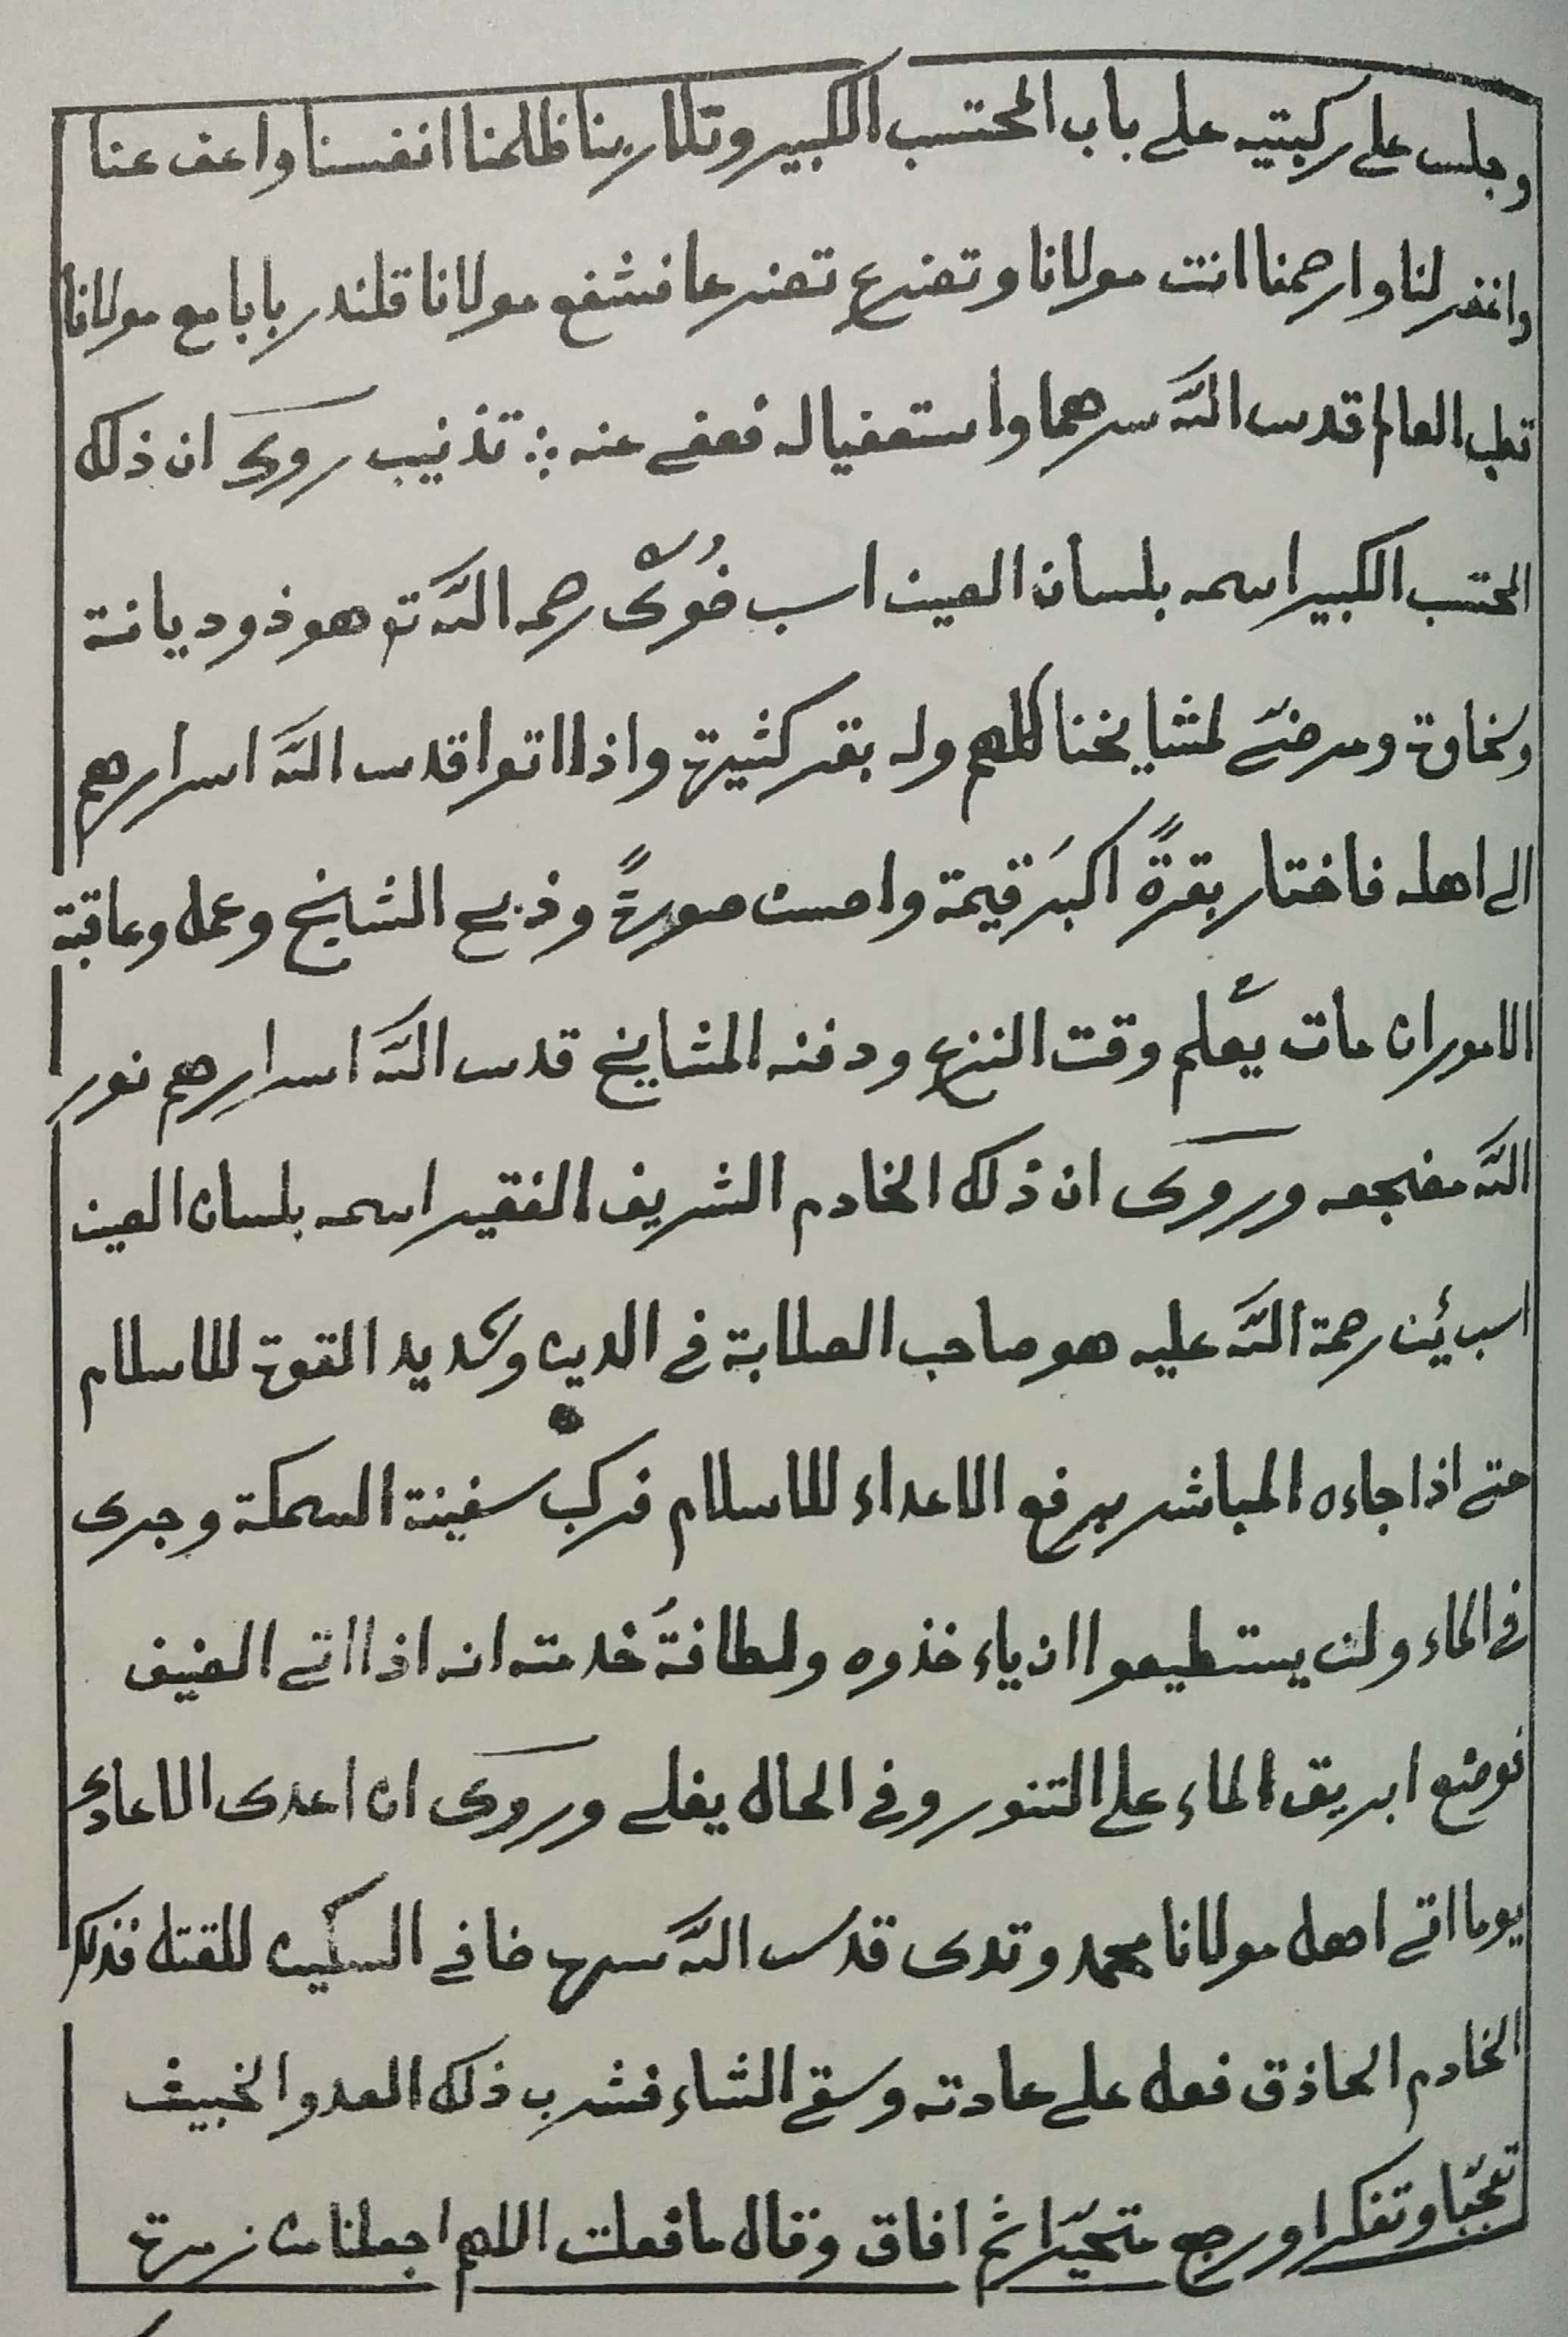 وجلس على ركبتيه على باب المحتسب الكبير وتلا ربنا ظلمنا انفسنا واعف عنا
واغفر لنا وارحمنا انت مولانا وتضرع تضرعا فشفع مولانا قلندر بابا مع مولانا
قطب العالم قدس اللّه سرهما واستعفيا له فعفى عنه ∴ تذنيب روى ان ذلك
المحتسب الكبير اسمه بلسان الصين اسب خُوىْ رحمه اللّه تع هو ذو ديانة
وسخاوة ومرضىّ لمشايخنا كلهم وله بقر كثيرة واذا اتوا قدس اللّه اسرارهم
الى اهله فاختار بقرةً اكبَر قيمة واحسن صورةً وذبح الشايخ وعمل وعاقبة
الامور ان مات يعلم وقت النزع ودفنه المشايخ قدس اللّه اسرارهم نور
اللّه مضجعه وروى ان ذلك الخادم الشريف الفقير اسمه بلسان الصين
اسب ئن رحمة اللّه عليه هو صاحب الصلابة فى الدين وشديد القوة للاسلام
حتى اذا جاءه المباشر برفع الاعداء للاسلام فركب سفينة السمكة وجرى
فى الماء ولن يستطيعوا ان ياءخذوه ولطافةُ خدمته انه اذا اتى الضيف
فوضع ابريق الماء على التنور وفى الحال يغلى وروى ان اعدى الاعادى
يوما اتى اهل مولانا محمد وتدى قدس اللّه سره خافى السكين للقتل فذلك
الخادم الحاذق فعل على عادته وسقى الشاء فشرب ذلك العدو الخبيث
تعجّبا وتفكرا ورجع متحيّرا ثم افاق وقال ما فعلت اللهم اجعلنا من زمرة